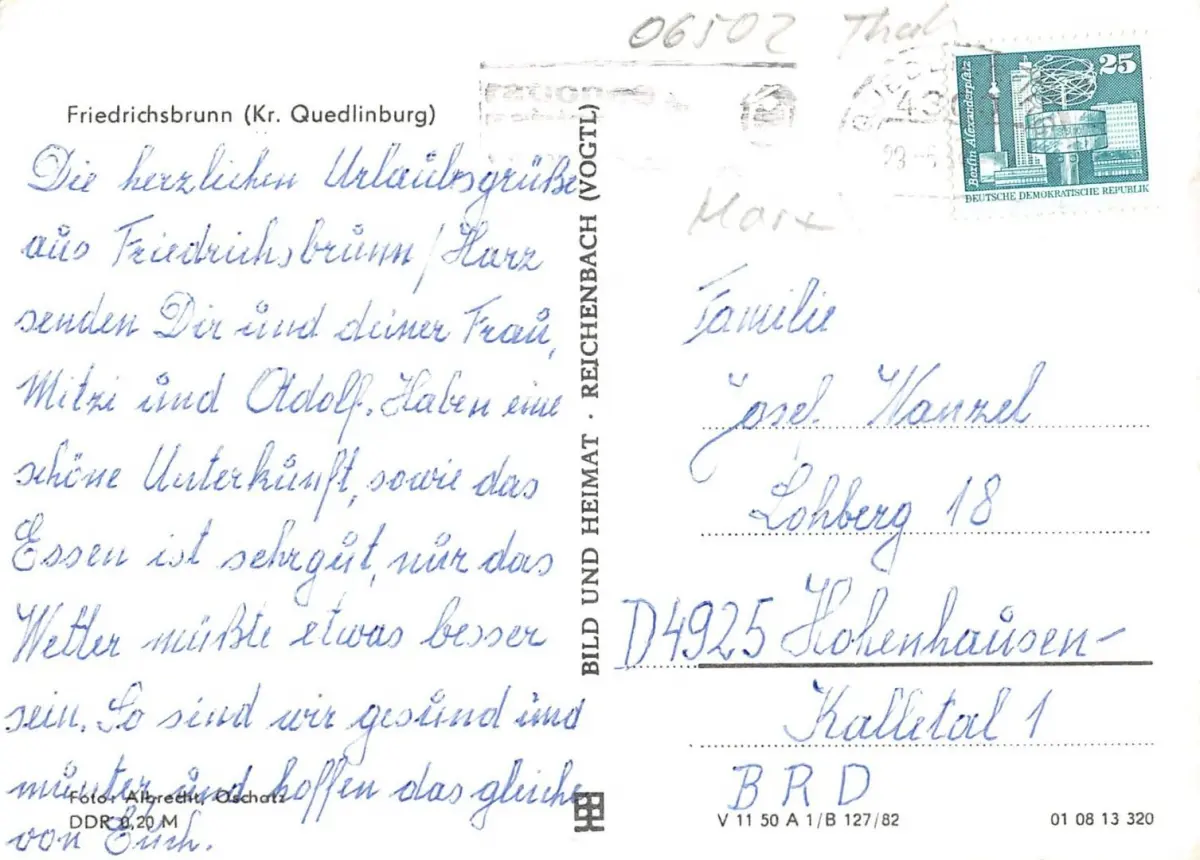 06502
Friedrichsbrunn (Kr. Quedlinburg)
Die herzlichen Urlaubsgrüße
aus Friedrichsbrunn/Harz
senden Dir und deiner Frau,
Mitzi und Adolf. Haben eine
schöne Unterkunft, sowie das
Essen ist sehr gut, nur das
Wetter müßte etwas besser
sein. So sind wir gesund und
munter und hoffen das gleiche
von Euch.
Foto: Albrecht, Oschatz
DDR 0,20 M
BILD UND HEIMAT · REICHENBACH (VOGTL)
25
Berlin Alexanderplatz
DEUTSCHE DEMOKRATISCHE REPUBLIK
Familie
Josef Wanzel
Lohberg 18
D4925 Hohenhausen-
Kalletal 1
BRD
V 11 50 A 1/B 127/82
01 08 13 320